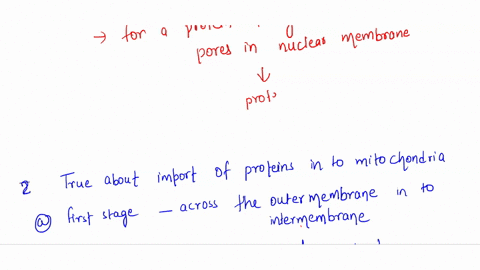 → for a
pores in nuclear membrane
↓
prot
2 True about import of proteins in to mitochondria
(a) first stage — across the outer membrane in to
intermembrane